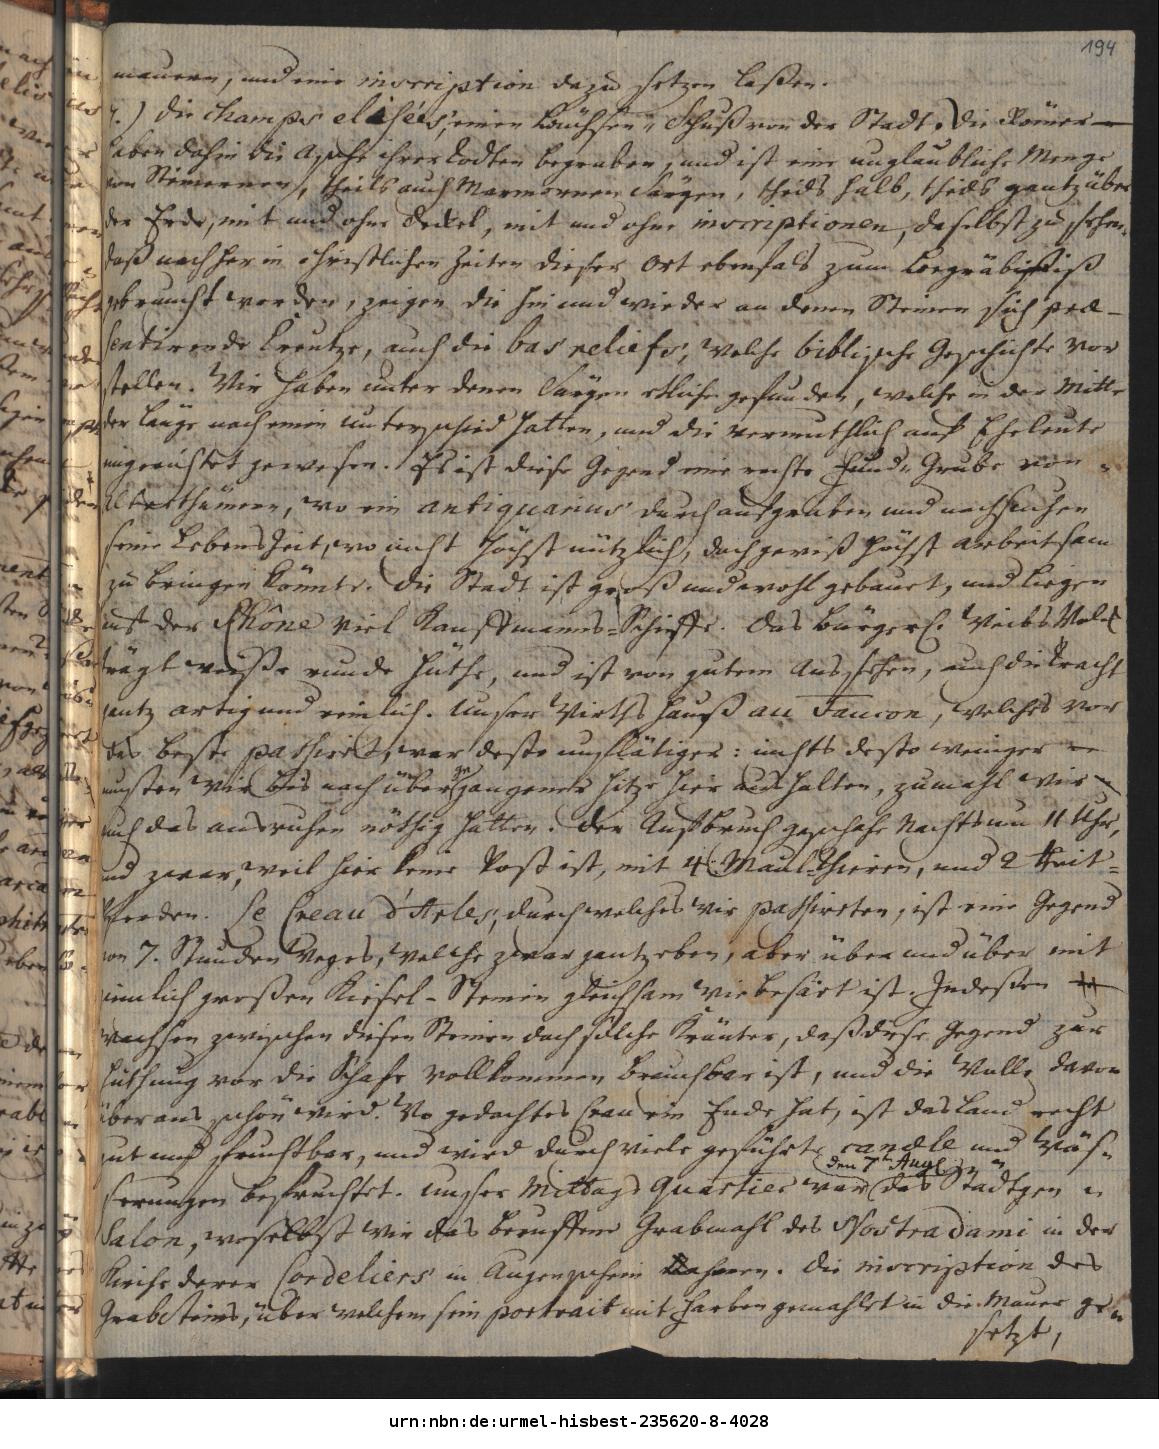 194
mauern, und eine inscription dazu setzen laßen.
4.) Die champs elisées, einen Büchsen-Schuß von der Stadt. Die Römer
haben dahin die Asche ihrer Todten begraben, und ist eine unglaubliche Menge
von Steinernen, theils auch Marmornen Särgen, theils halb, theils gantz über
der Erde, mit und ohne Deckel, mit und ohne inscriptionen, daselbst zu sehen,
daß nachher in christlichen Zeiten dieser Ort ebenfals zum Begräbniß
gebraucht worden, zeigen die hin und wieder an denen Steinen sich præ-
sentirende Creutze, auch die bas reliefs, welche biblische Geschichte vor
stellen. Wir haben unter denen Särgen etliche gefunden, welche in der Mitte
der Länge nach einen unterschied hatten, und die vermuthlich auf Eheleute
eingerichtet gewesen. Es ist diese Gegend eine rechte Fund-Grube von
Alterthümern, wo ein antiquarius durch aufgraben und nachsuchen
seine Lebens Zeit, wo nicht höchst nützlich, doch gewiß höchst arbeitsam
zu bringen könnte. Die Stadt ist groß und wohl gebauet, und liegen
auf der Rhône viel Kauffmanns-Schiffe. Das bürgerl. Weibs Volck
trägt weiße runde Hüthe, und ist von gutem Aussehen, auch die Tracht
gantz artig und reinlich. Unser Wirths Hauß au Faucon, welches vor
das beste passiret, war desto unflätiger: nichts desto weniger
musten wir bis nach übergangener Hitze hier aushalten, zumahl wir
auch das ausruhen nöthig hatten. Der Aufbruch geschahe Nachts um 11 Uhr,
und zwar, weil hier keine Post ist, mit 4 Maul-Thieren, und 2 Reit-
Pferden. Le Creau d'Arles, durch welches wir passireten, ist eine Gegend
von 7. Stunden Weges, welche zwar gantz eben, aber über und über mit
ziemlich großen Kiesel-Steinen gleichsam wie besäet ist. Indeßen
wachsen zwischen diesen Steinen doch solche Kräuter, daß diese Gegend zur
Hüthung vor die Schafe vollkommen brauchbar ist, und die Wolle davon
überaus schön wird. Wo gedachtes Crau ein Ende hat, ist das Land recht
gut und fruchtbar, und wird durch viele geführte canæle und Wäs-
serungen befruchtet. Unser Mittags Quartier war den 7ten Aug. das Städtgen
Salon, woselbst wir das beruffene Grabmahl des Nostradami in der
Kirche derer Cordeliers in Augenschein nahmen. Die inscription des
Grabsteins, über welchem sein portrait mit Farben gemahlet in die Mauer ge-
setzt,
urn:nbn:de:urmel-hisbest-235620-8-4028